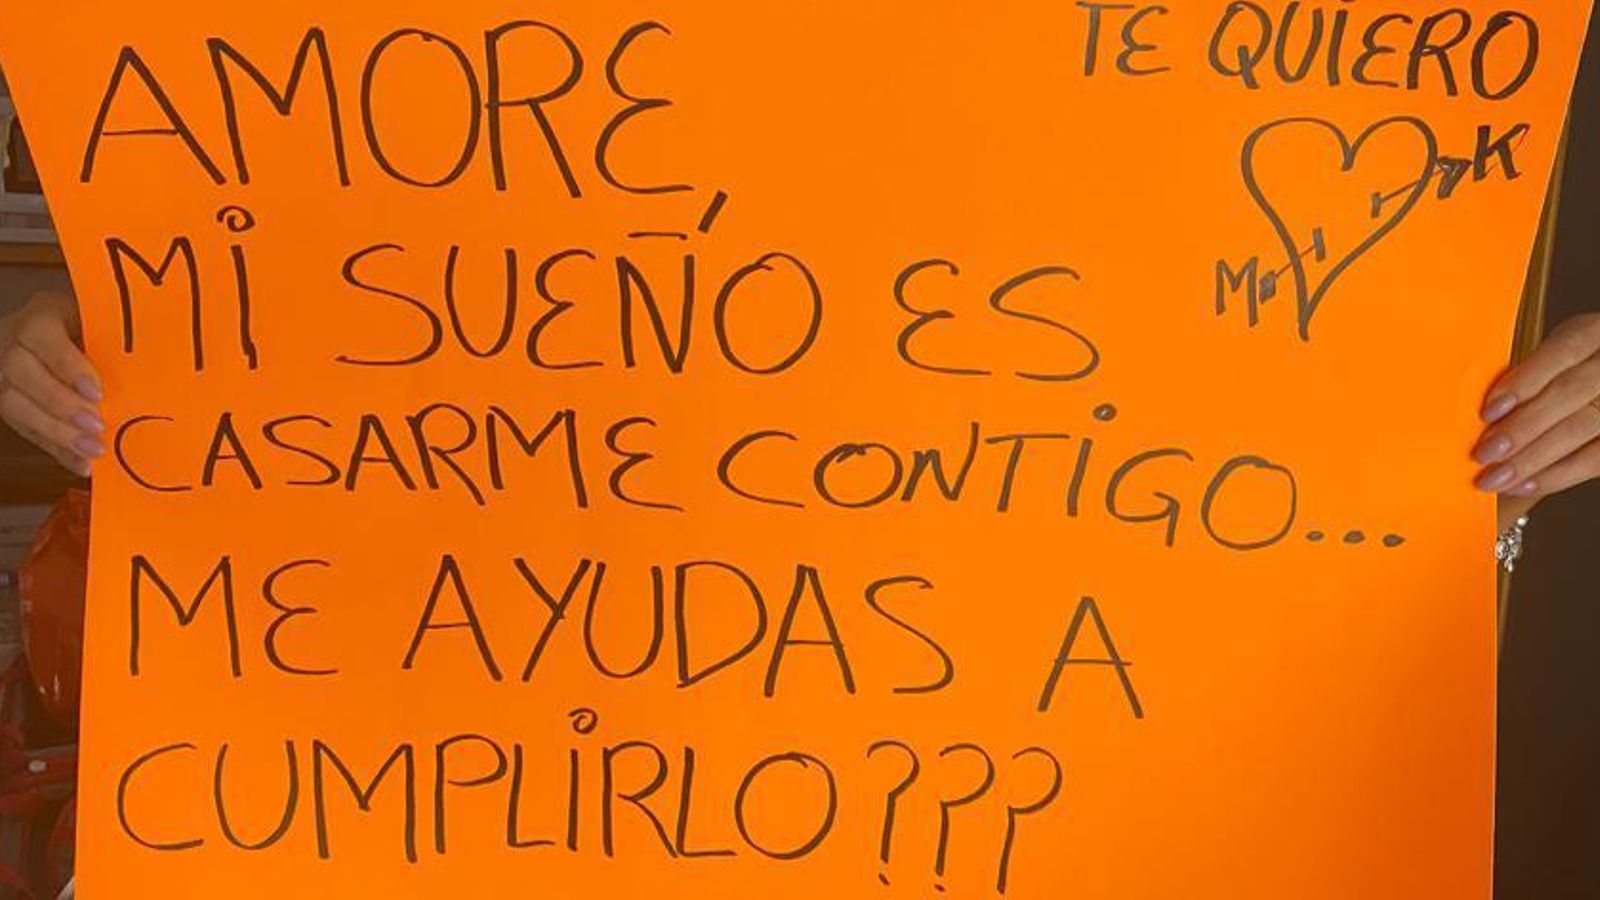 TE QUIERO
K
M
AMORE,
Mi SUEÑO ES
CASARME CONTiGO...
ME AYUDAS A
CUMPLiRLO???